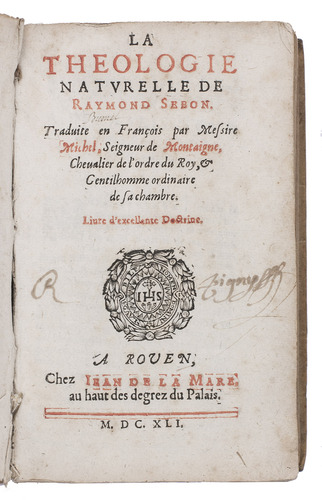 LA
THEOLOGIE
NATVRELLE DE
RAYMOND SEBON.
Traduite en François par Messire
Michel, Seigneur de Montaigne,
Chevalier de l'ordre du Roy, &
Gentilhomme ordinaire
de sa chambre.
Liure d'excellente Doctrine.
R
IHS
A ROVEN,
Chez IEAN DE LA MARE,
au haut des degrez du Palais.
M. DC. XLI.